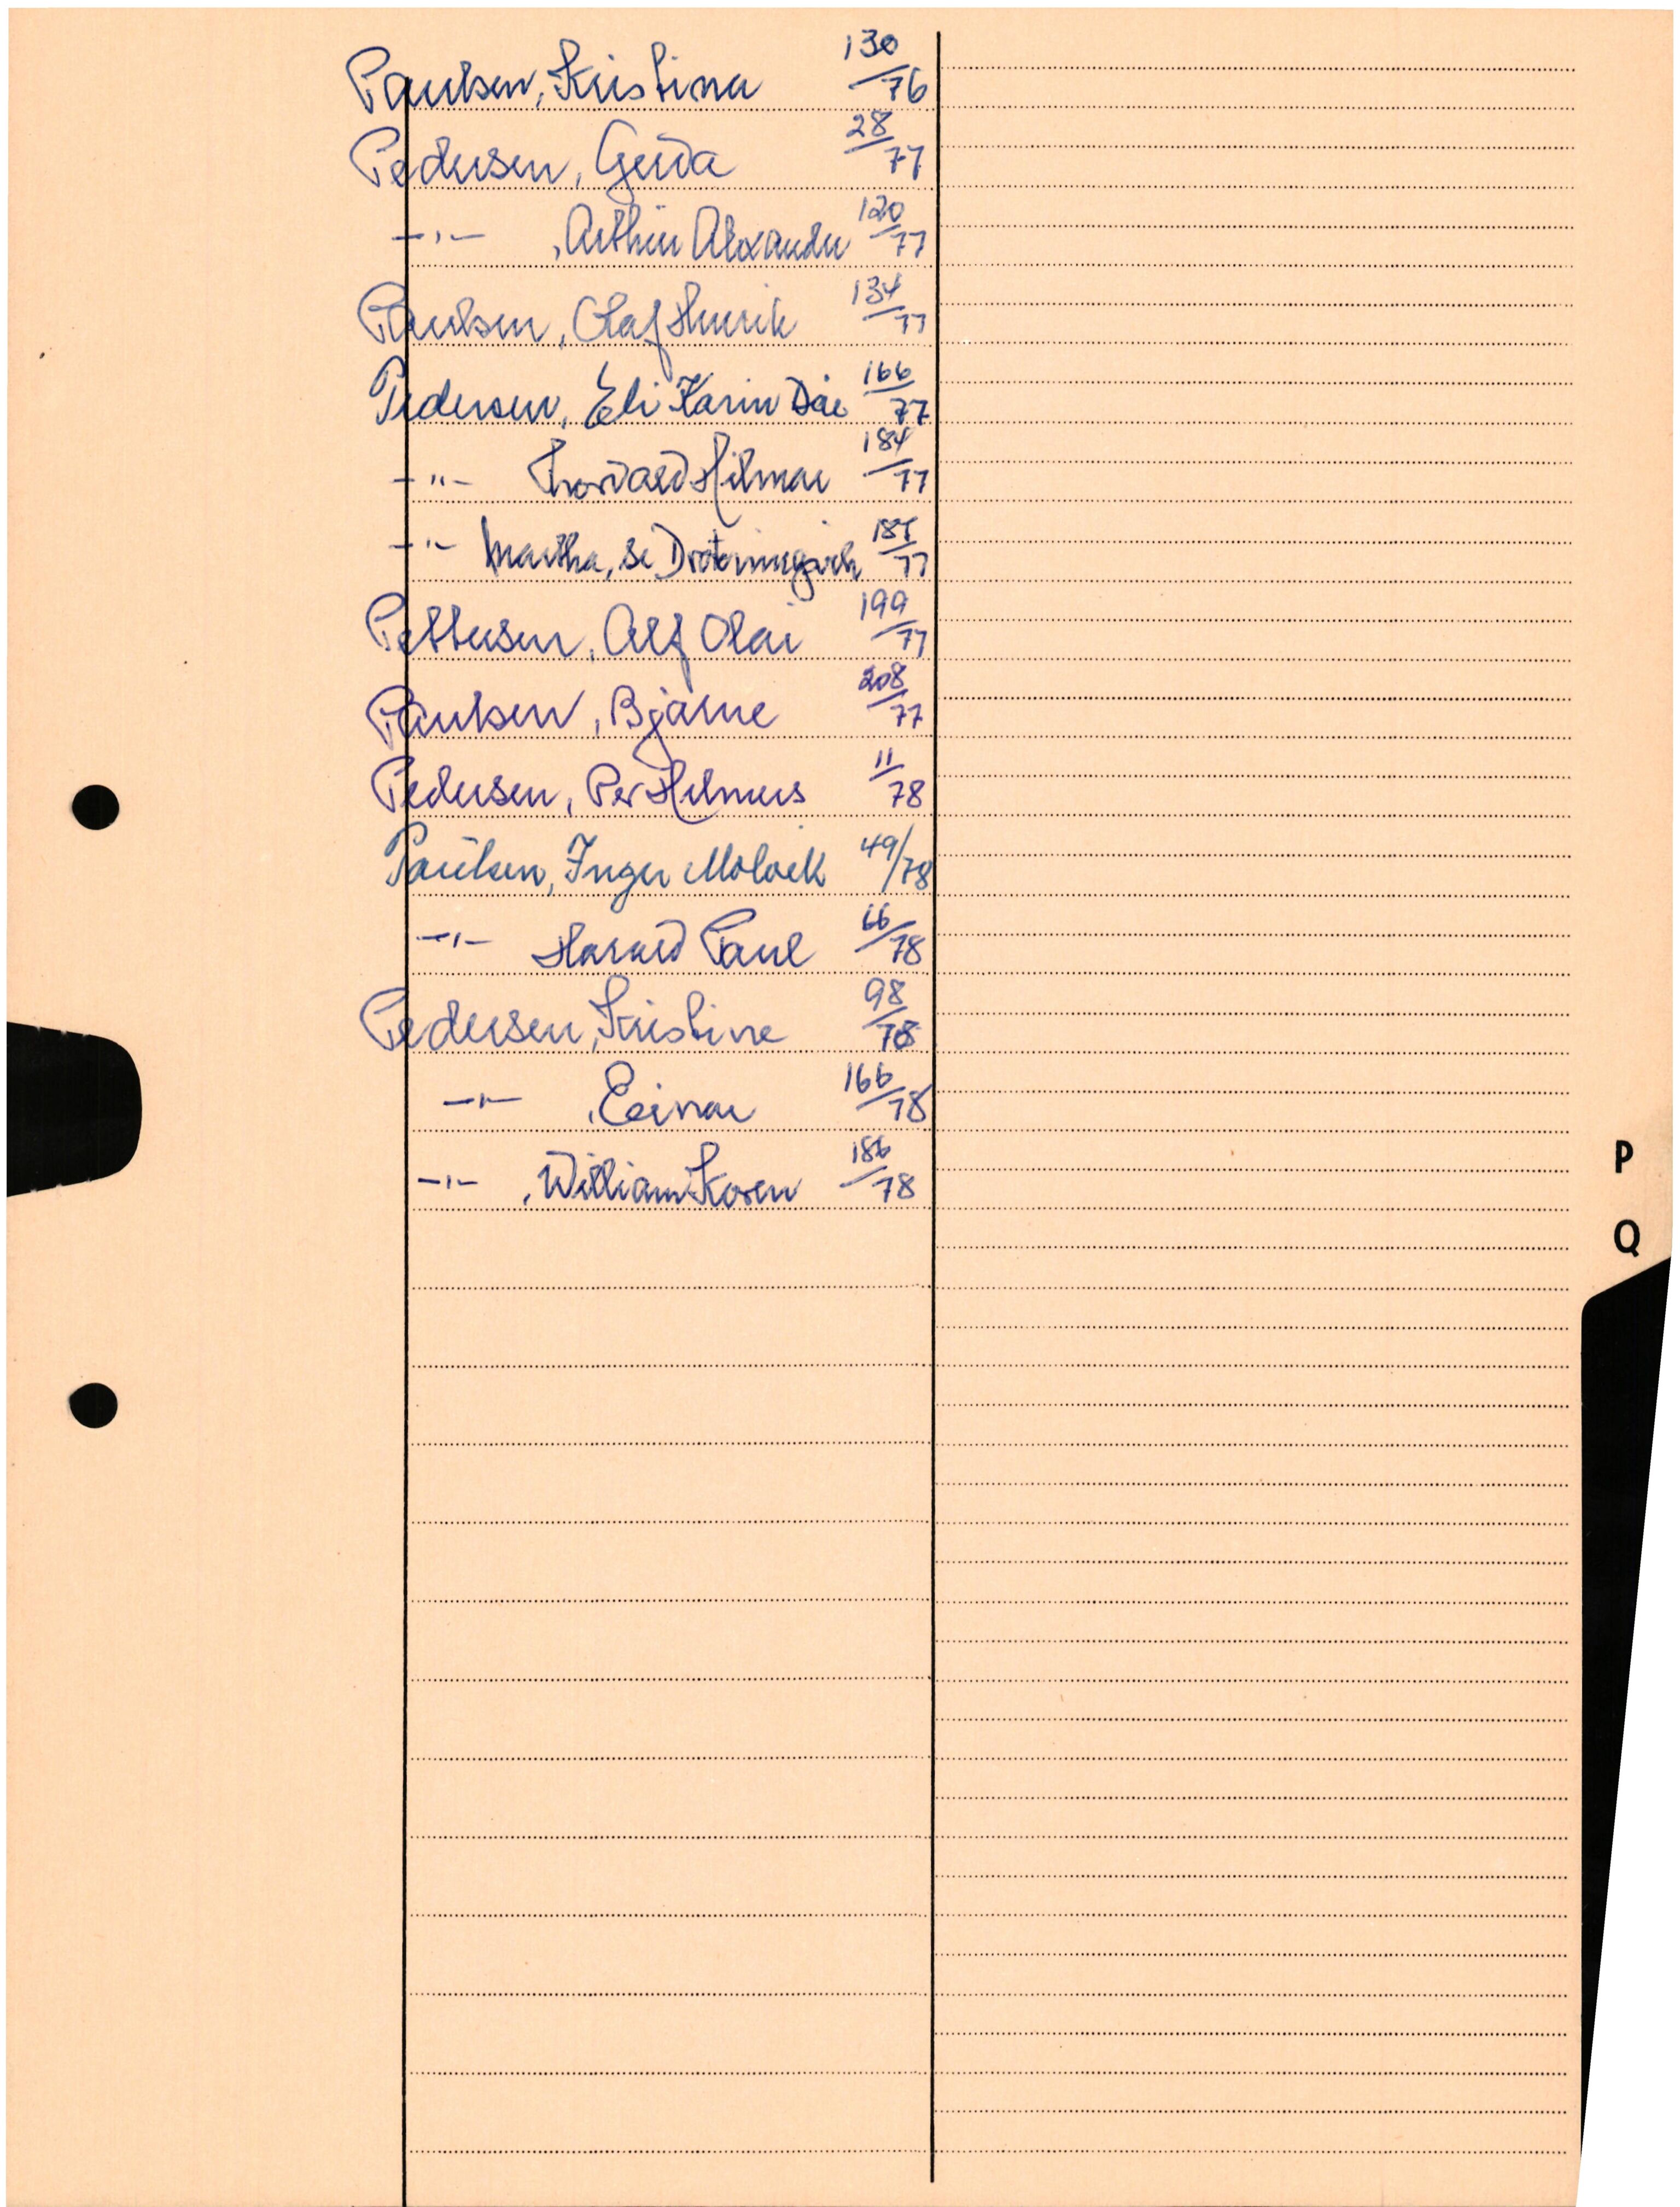 Paulsen, Kristina 130/76
Pedersen, Gerda 28/77
-"- , Arthur Alexander 120/77
Paulsen, Olaf Henrik 134/77
Pedersen, Eli Karin Dåe 166/77
-"- Thorvald Hilmar 184/77
-"- Martha, se 187/77
Pettersen, Alf Olai 199/77
Paulsen, Bjarne 208/77
Pedersen, Per Hilmers 11/78
Paulsen, Inger 49/78
-"- Harald Paul 66/78
Pedersen, Kristine 98/78
-"- , Einar 166/78
-"- , William Koren 186/78
P
Q